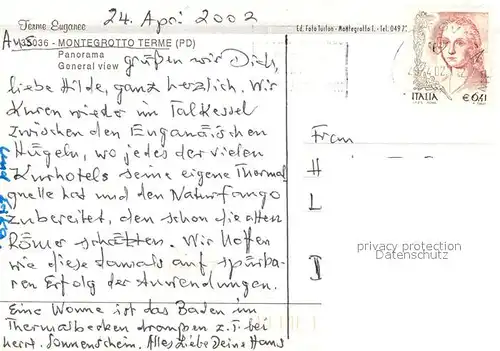 Terme Euganee
24. Apri 2002
Aus
35036 - MONTEGROTTO TERME (PD)
Panorama
General view
Ed. Foto Turlon - Montegrotto T. - Tel. 049 7
grüßen wir Dich,
liebe Hilde, ganz herzlich. Wir
kuren wieder im Talkessel
zwischen den Euganäischen
Hügeln, wo jedes der vielen
Kurhotels seine eigene Thermal
quelle hat und den Naturfango
zubereitet, den schon die alten
Römer schätzten. Wir hoffen
wie diese damals auf spürba-
ren Erfolg der Anwendungen.
Eine Wonne ist das Baden im
Thermalbecken draußen z.T. bei
herrl. Sonnenschein. Alles Liebe Deine Hans
und
ITALIA
€0,41
Frau
H
L
D
privacy protection
Datenschutz